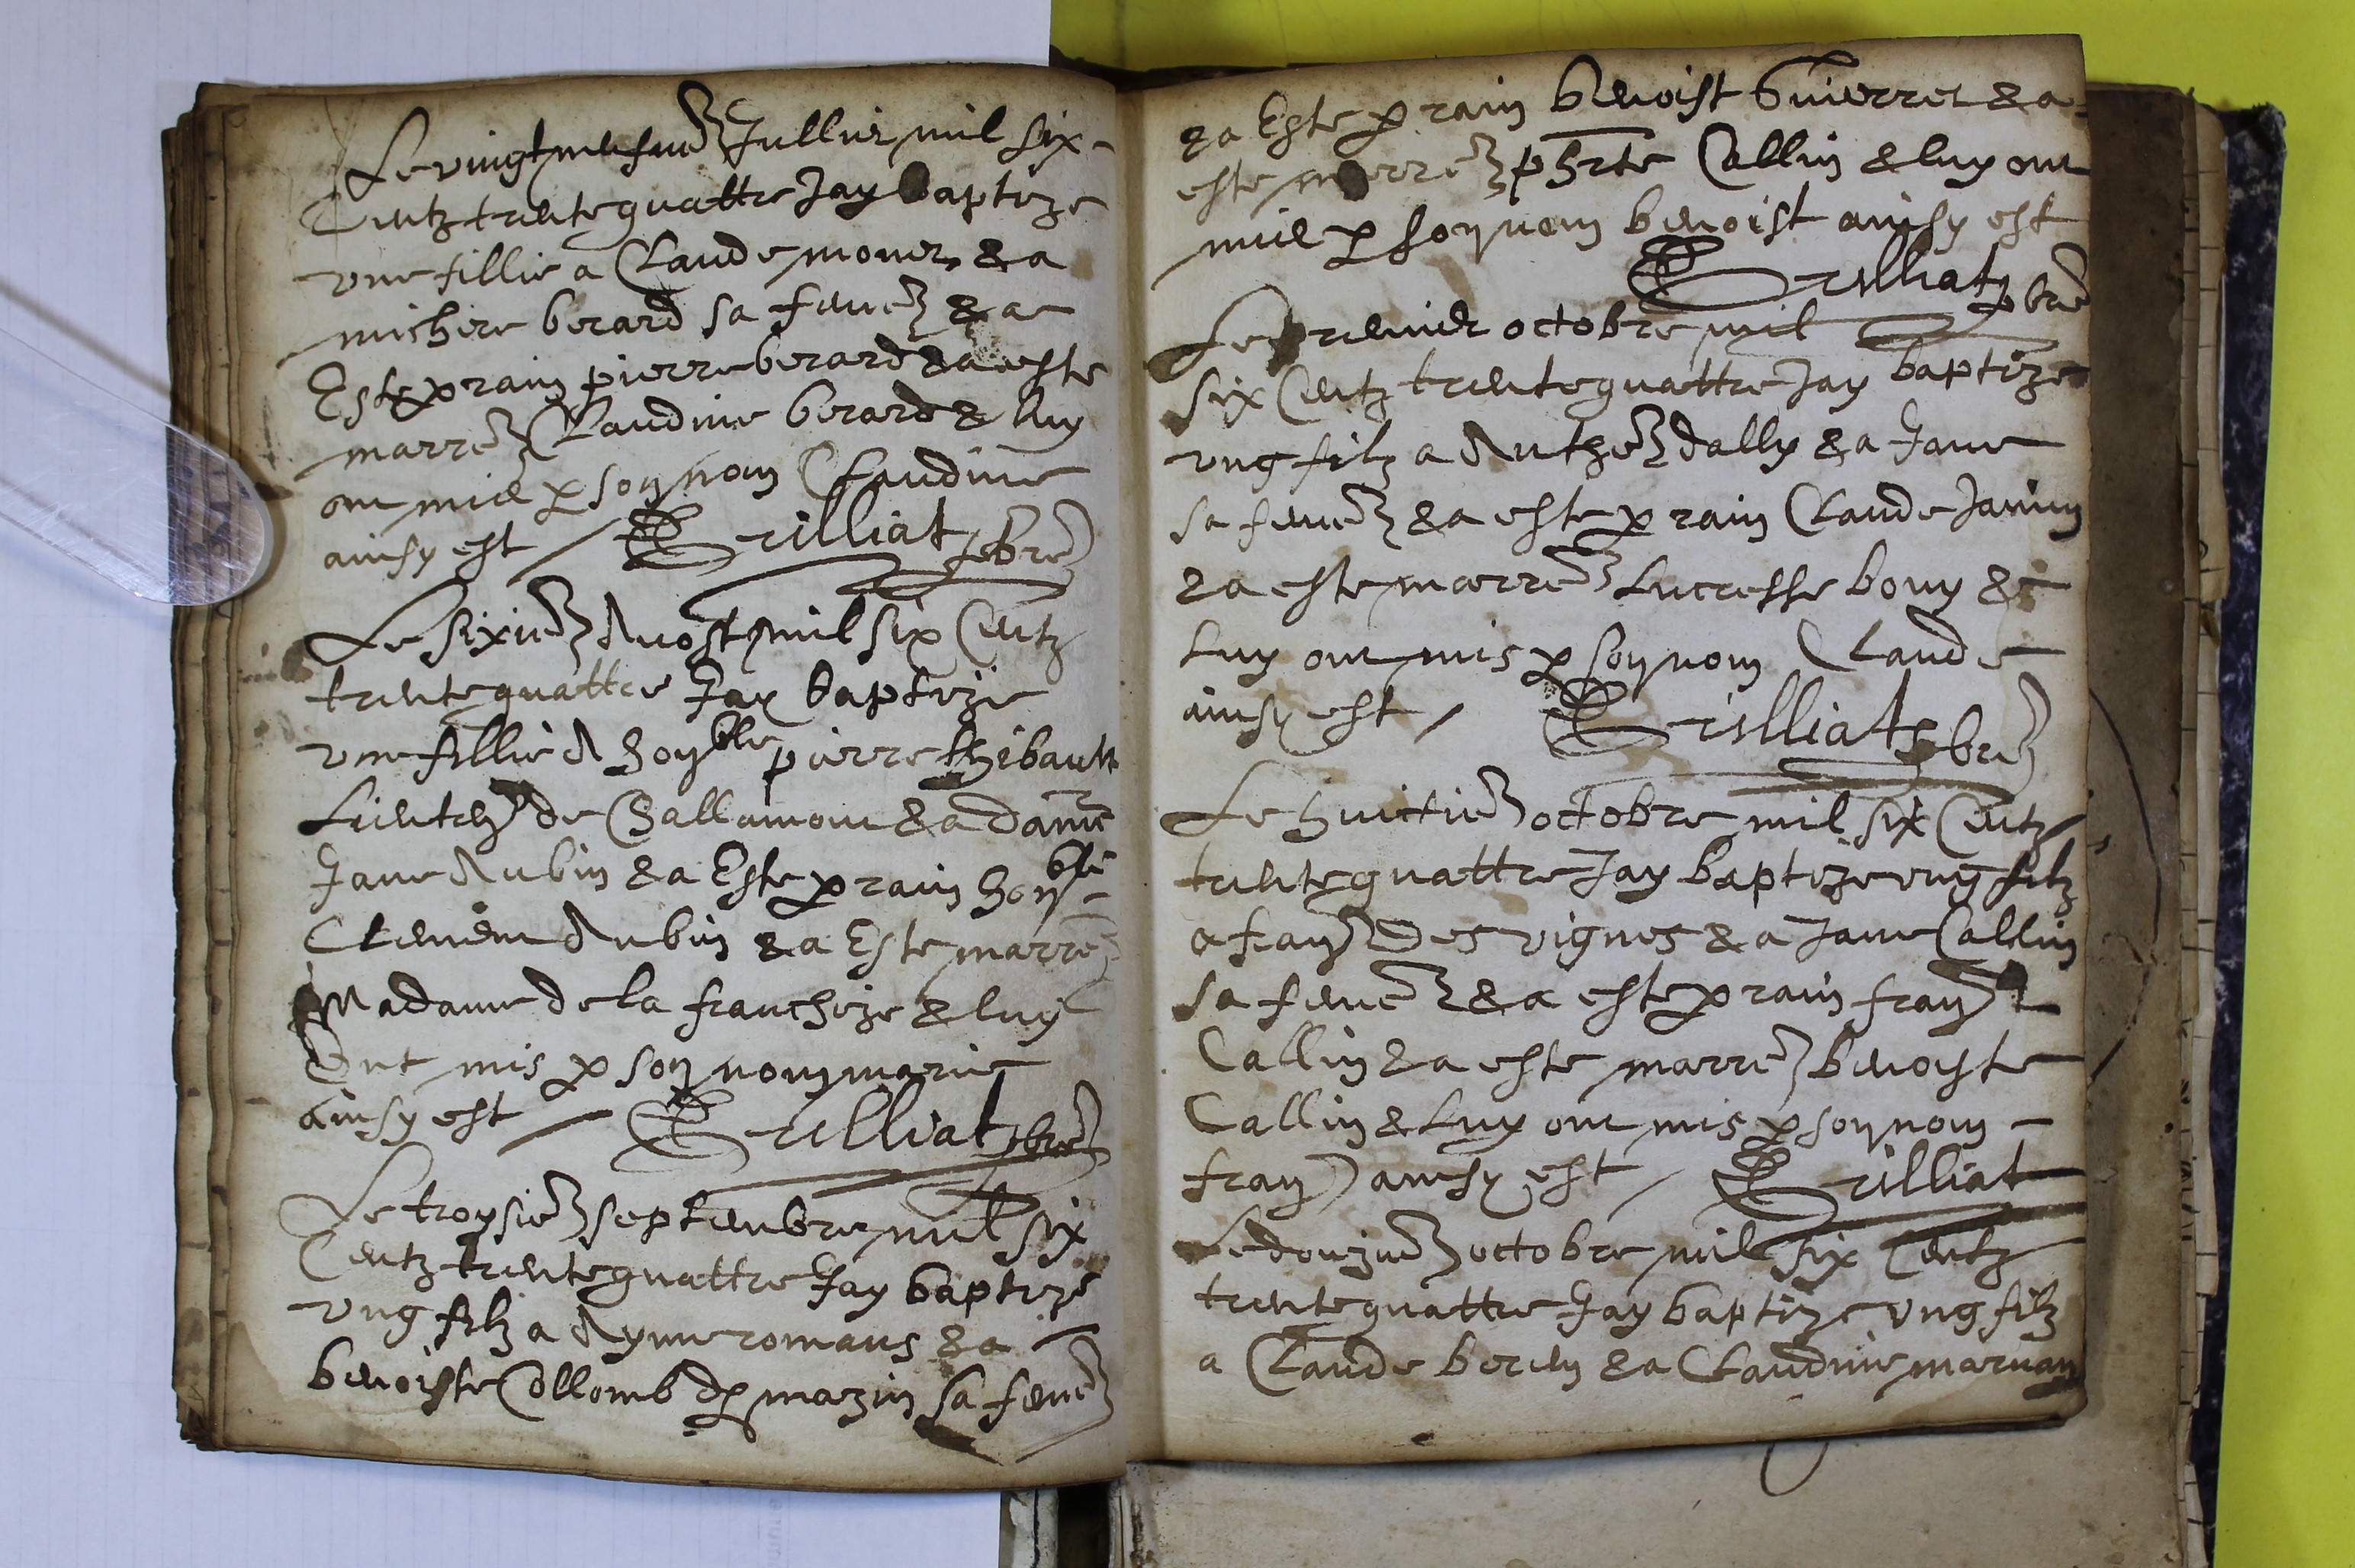 Le vingt neufme Jullier mil six
Centz trente quattre Jay baptize
une fillie a Claude moner & a
michere berard sa feme & a
Este prain pierre berard & a este
marre Claudine berard & luy
ont mis p son nom Claudine
ainsy est Trilliat pbre
Le sixie Aoust mil six Centz
trente quattre Jay baptize
une fillie A hoyble pierre thibault
Lieuten de Challamont & a dame
Jane Aubin & a Este prain hoyble
Clement Aubin & a Este marre
Madame de la franchize & luy
Ont mis p son nom marie
ainsy est Trilliat pbre
Le troysie septembre mil six
Centz trente quattre Jay baptize
ung filz a Ayme romans & a
benoiste Collomb dp mazin sa feme
& a Este prain benoist & a
este marre Callin & luy ont
mis p son nom benoist ainsy est
Trilliat pbre
Le premier octobre mil
six Centz trente quattre Jay baptize
ung filz a Anthe dally & a Jane
sa feme & a este prain Claude Janin
& a este marre Lucresse bouy &
Luy ont mis p son nom Claude
ainsy est Trilliat pbre
Le huictie octobre mil six Centz
trente quattre Jay baptize ung filz
a frany Des vignes & a Jane Callin
sa feme & a este prain frany
Callin & a este marre benoiste
Callin & Luy ont mis p son nom
frany ainsy est Trilliat
Le douzie octobre mil six Centz
trente quattre Jay baptize ung filz
a Claude & a Claudine